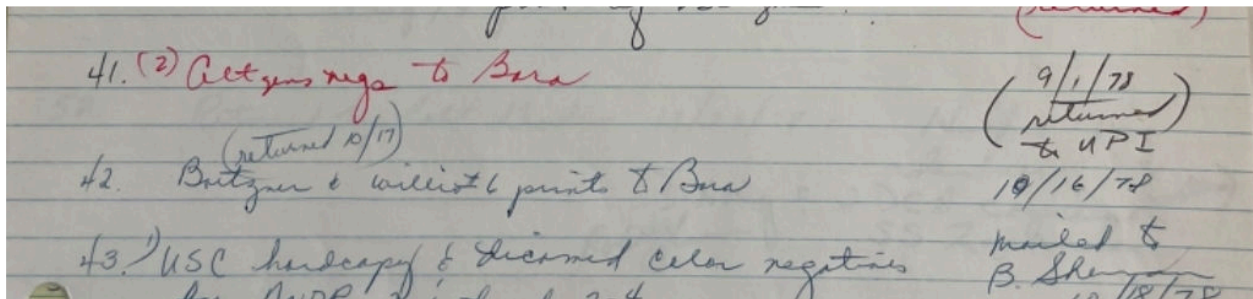 (returned)
41. (2) Altgens negs to Bara
9/1/78
(returned)
to UPI
(returned 10/17)
42. Betzner & Willis 6 prints to Bara
10/16/78
43. 1) USC hardcopy & Dicomed color negatives
mailed to
B. Sherman
10/18/78